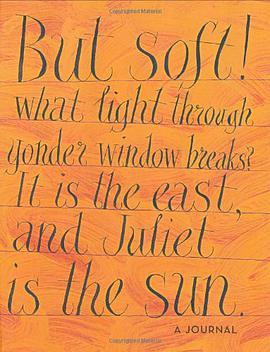 Copyrighted Material
But soft!
what light through
yonder window breaks?
It is the east,
and Juliet
is the sun.
A JOURNAL
Copyrighted Material